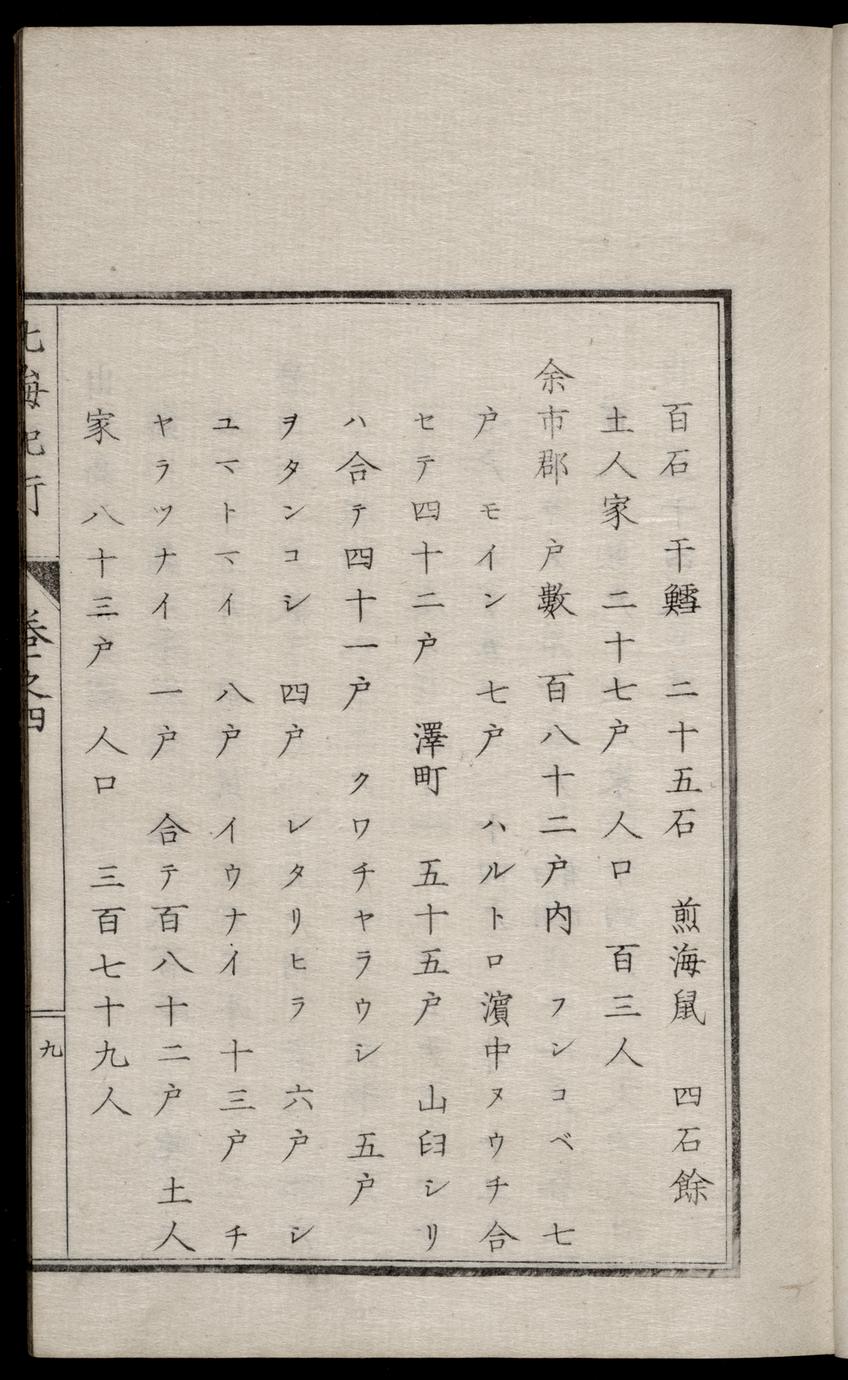 百石　干鱈　二十五石　煎海鼠　四石餘
土人家　二十七戸　人口　百三人
余市郡　戸數　百八十二戸内　フンコベ　七
戸　モイン　七戸　ハルトロ濵中ヌウチ合
セテ四十二戸　澤町　五十五戸　山臼シリ
ハ合テ四十一戸　クワチヤラウシ　五戸
ヲタンコシ　四戸　レタリヒラ　六戸　シ
ユマトマイ　八戸　イウナイ　十三戸　チ
ヤラツナイ　一戸　合テ百八十二戸　土人
家　八十三戸　人口　三百七十九人
北海紀行　卷之四　九